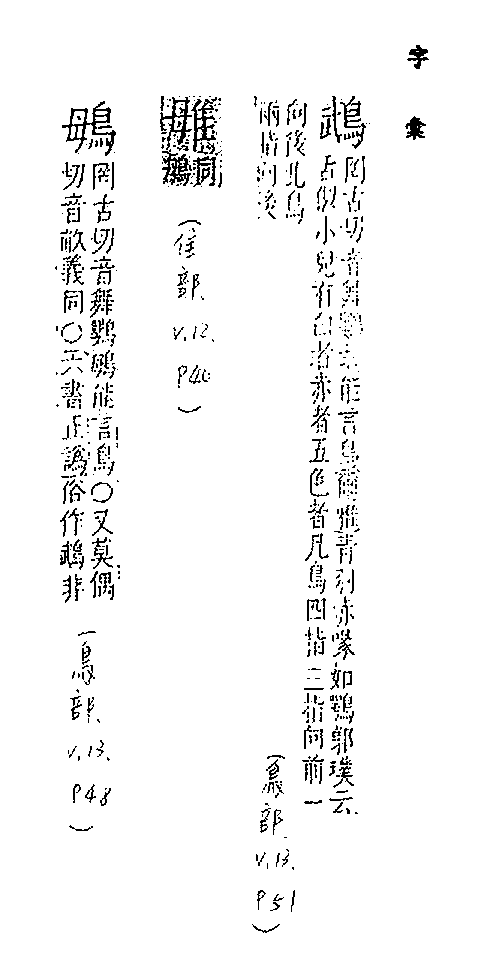 字彙
鵡
罔古切音舞鸚能言鳥爾雅青羽赤喙如鸚郭璞云
占似小兒有白者赤者五色者凡鳥四指三指向前一
向後此鳥
兩指向後
(鳥部、v.13. P51)
同
鵡
(隹部、v.12. P40)
鴟
罔古切音舞鸚鵡能言鳥〇又莫偶
切音畝義同〇六書正譌俗作鵡非
(鳥部、v.13. P48)